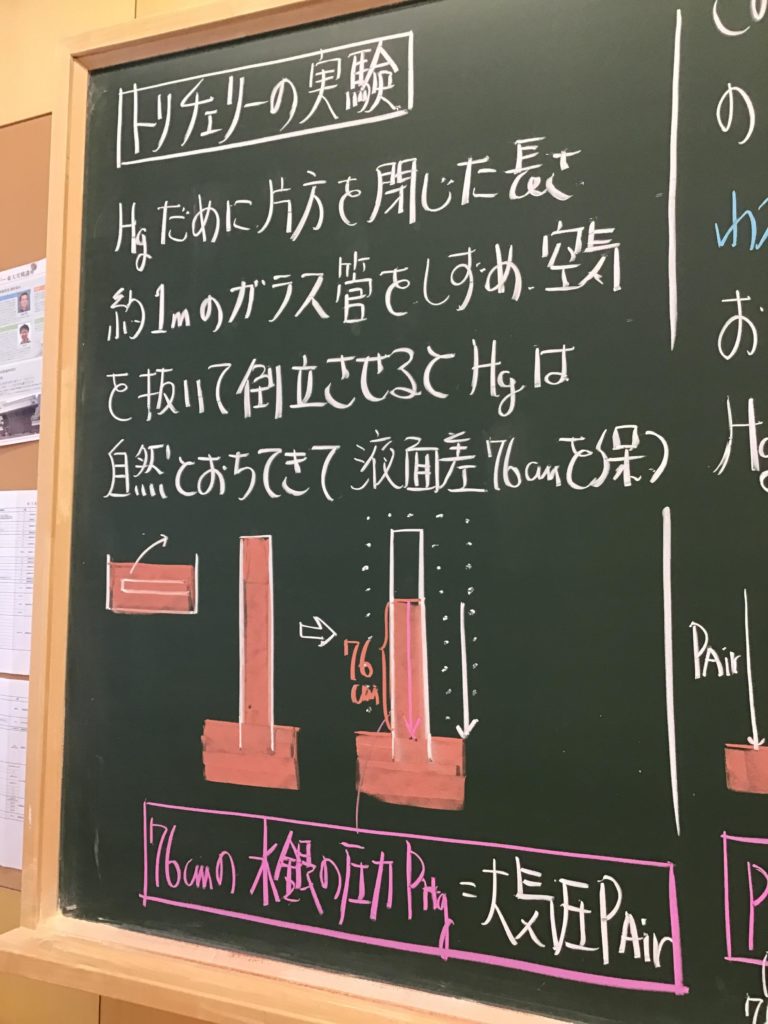 トリチェリーの実験
Hgだめに片方を閉じた長さ
約1mのガラス管をしずめ、空気
を抜いて倒立させるとHgは
自然とおちてきて液面差76cmを保つ
76
cm
76cmの水銀の圧力PHg=大気圧PAir
の
お
Hg
PAir
P